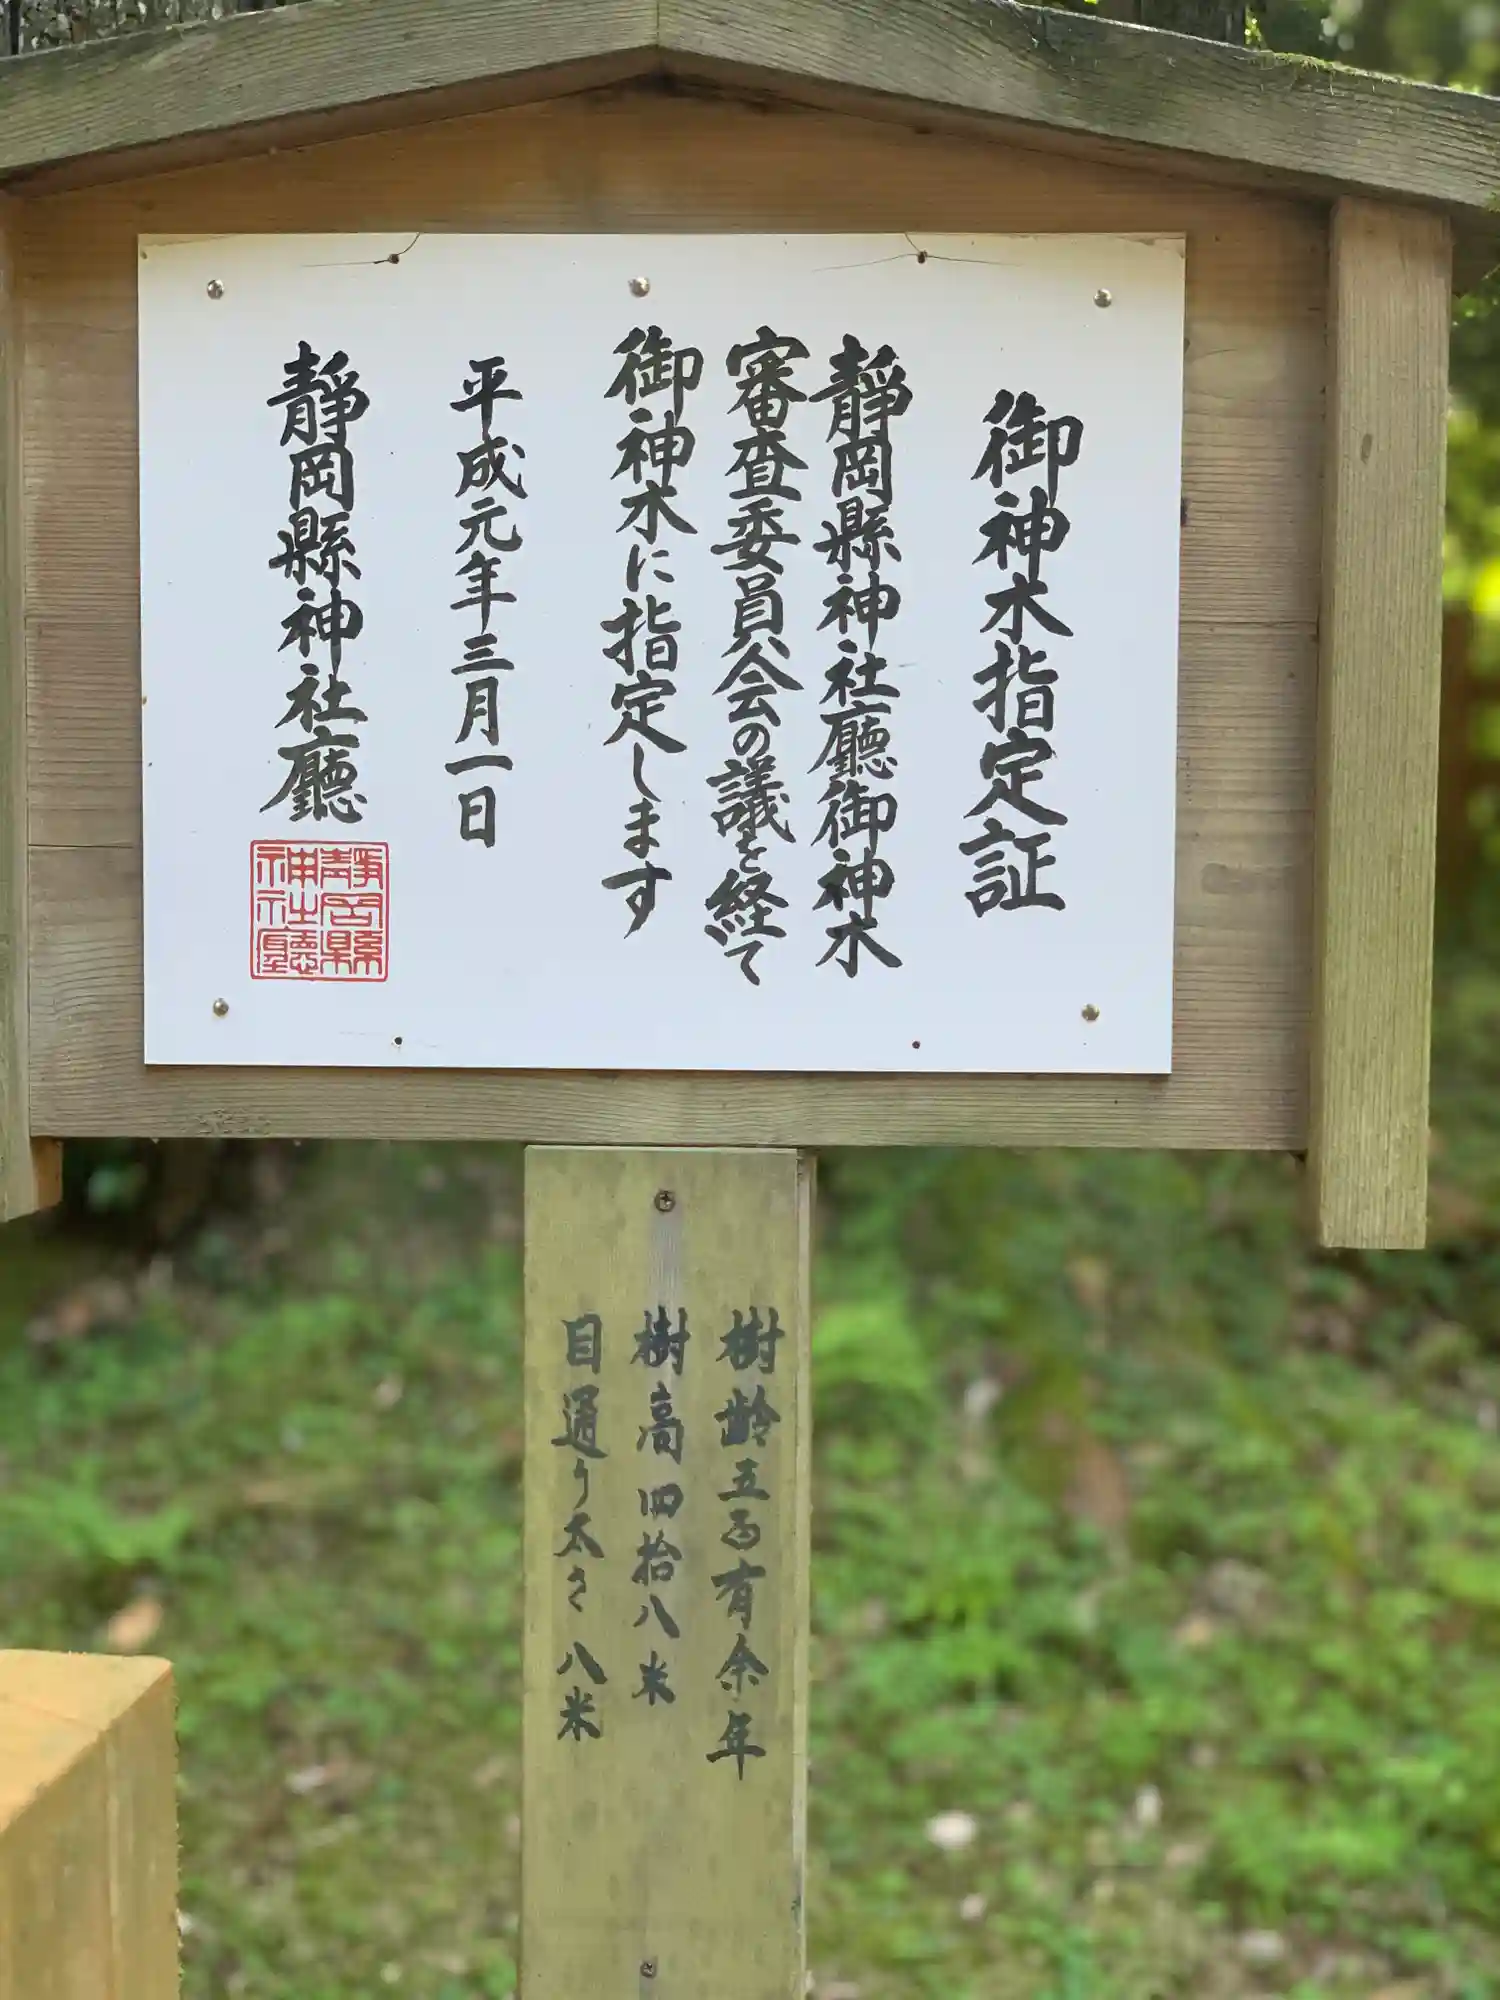 御神木指定証
靜岡縣神社廳御神木
審査委員会の議を経て
御神木に指定します
平成元年三月一日
靜岡縣神社廳
靜岡縣
神社廳
樹齢五百有余年
樹高四拾八米
目通り太さ八米